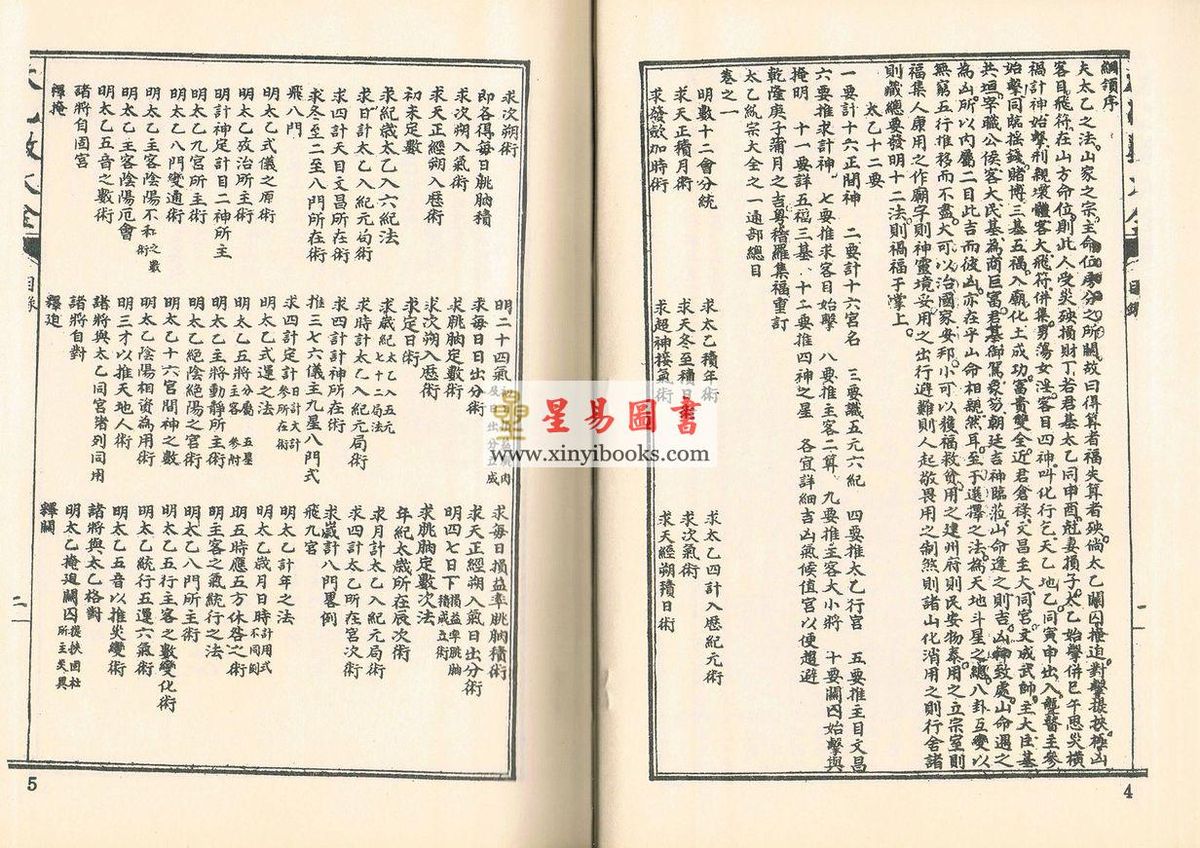 綱領序
夫太乙之法山家之宗主命位房分之所關故曰得算者福失算者殃倘太乙關囚掩迫對擊提挾極山
客目飛符在山方命位則此人受災殃損財丁若君基太乙同申酉尅妻損子太乙始擊併巳午思災橫
禍計神始擊刑親壞體客大飛符併集男蕩女淫客目四神叫化行乞天乙地乙同寅申出入聾瞽主參
始擊同臨搖錢賭博三基五福入廟化土成功富貴雙全近君倉祿文昌主大同宮文成武帥主大臣基
共垣宰職公候客大民基為商巨富君基御駕象笏朝廷吉神臨蒞山命逢之則吉凶神致處山命遇之
為凶所以內屬二目此吉而彼凶亦在乎山命相親然耳至于選擇之法為天地斗星之總八卦互變以
無窮五行推移而不盡大可以治國家安邦小可以獲福救貧用之建州府則民安物泰用之立宗室則
福集人康用之作廟宇則神靈境妥用之出行避難則人起敬畏用之制煞則諸山化消用之則行舍諸
則藏總要發明十二法則禍福于掌上
太乙十二要
一要計十六正間神 二要計十六宮名 三要識五元六紀 四要推太乙行宮 五要推主目文昌
六要推求計神 七要推求客目始擊 八要推主客二算 九要推主客大小將 十要關囚始擊與
掩明 十一要詳五福三基 十二要推四神之星 各宜詳細吉凶氣候值宮以便趨避
乾隆庚子蒲月之吉粤稽羅集福重訂
太乙統宗大全之一速部總目
卷之一
明數十二會分統 求太乙積年術 求太乙四計入歷紀元術
求天正積月術 求天冬至積日術 求次氣術
求發歛加時術 求超神接氣術 求天經朔積日術
4
求次朔術 明二十四氣 求每日損益率朓朒積術
即各得每日朓朒積 求每日日出分術 求天正經朔入氣日出分術
求次朔入氣術 求朓朒定數術 明四七日下損益率朓朒積成立術
求天正經朔入歷術 求次朔入歷術 求朓朒定數次法
初末定數 求定日術 年紀太歲所在辰次術
求紀歲太乙入六紀法 求歲紀太乙入五元七十二局法 求月計太乙入紀元局術
求日計太乙入紀元局術 求時計太乙入紀元局術 求四計太乙所在宮次術
求四計天目文昌所在術 求四計計神所在術 求歲計八門畧例
求冬至二至八門所在術 推三七六儀主九星八門式 飛九宮
飛八門 求四計定計日計大計參所在術 明太乙計年之法
明太乙式儀之原術 明太乙式運之法 明太乙歲月日時計用式不同例
明太乙政治所主術 明太乙五將分屬五星主客參附 明五時應五方休咎之術
明計神定計目二神所主 明太乙主將動靜所主術 明主客之氣統行之法
明太乙九宮所主術 明太乙絕陰絕陽之宮術 明太乙八門所主術
明太乙八門變通術 明太乙十六宮間神之數 明太乙五行主客之數變化術
明太乙主客陰陽不和之數術 明太乙陰陽相資為用術 明太乙統行五運六氣術
明太乙主客陰陽厄會 明三才以推天地人術 明太乙五音以推災變術
明太乙五音之數術 諸將與太乙同宮旁列同用 諸將與太乙格對
諸將自囚宮 諸將自對 明太乙掩迫關囚提挾囚杜所主災異
釋掩 釋迫 釋關
太乙數大全
目錄
二
5
星易圖書
www.xinyibooks.com